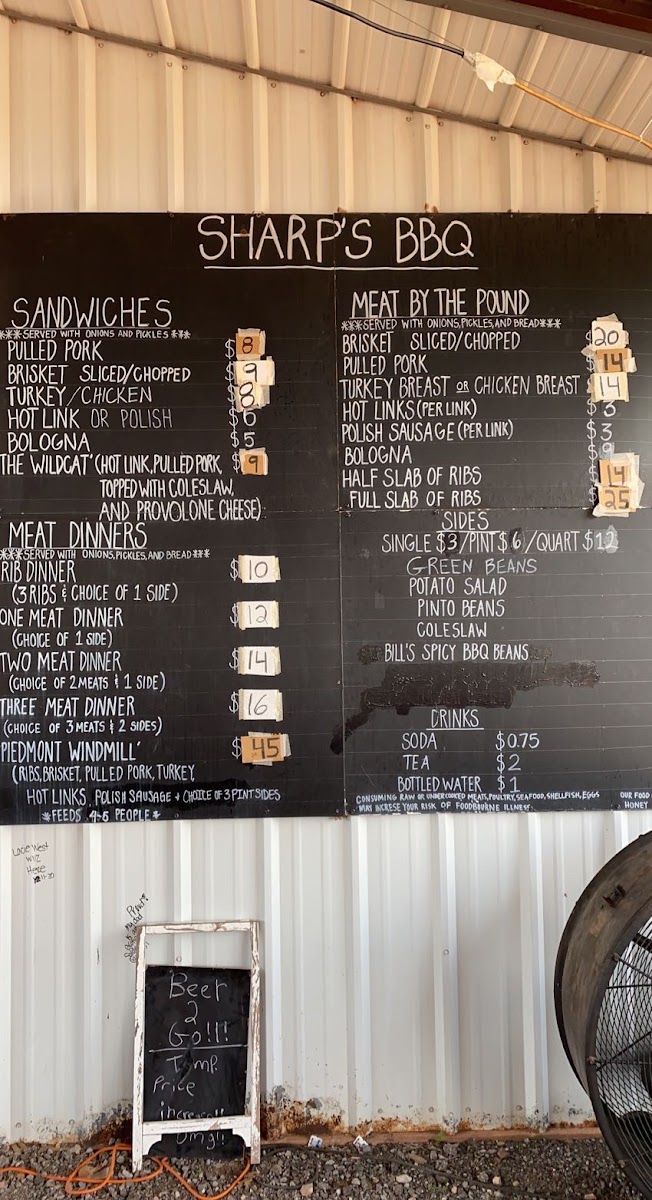 SHARP'S BBQ
SANDWICHES
***SERVED WITH ONIONS AND PICKLES***
PULLED PORK $8
BRISKET SLICED/CHOPPED $9
TURKEY/CHICKEN $8
HOT LINK OR POLISH $6
BOLOGNA $5
THE WILDCAT' (HOT LINK, PULLED PORK, $9
TOPPED WITH COLESLAW,
AND PROVOLONE CHEESE)
MEAT DINNERS
***SERVED WITH ONIONS, PICKLES, AND BREAD***
RIB DINNER $10
(3 RIBS & CHOICE OF 1 SIDE)
ONE MEAT DINNER $12
(CHOICE OF 1 SIDE)
TWO MEAT DINNER $14
(CHOICE OF 2 MEATS & 1 SIDE)
THREE MEAT DINNER $16
(CHOICE OF 3 MEATS & 2 SIDES)
PIEDMONT WINDMILL' $45
(RIBS, BRISKET, PULLED PORK, TURKEY,
HOT LINKS, POLISH SAUSAGE + CHOICE OF 3 PINT SIDES
*FEEDS 4-6 PEOPLE*
MEAT BY THE POUND
***SERVED WITH ONIONS, PICKLES, AND BREAD***
BRISKET SLICED/CHOPPED $20
PULLED PORK $14
TURKEY BREAST OR CHICKEN BREAST $14
HOT LINKS (PER LINK) $3
POLISH SAUSAGE (PER LINK) $3
BOLOGNA $9
HALF SLAB OF RIBS $14
FULL SLAB OF RIBS $25
SIDES
SINGLE $3/PINT $6/QUART $12
GREEN BEANS
POTATO SALAD
PINTO BEANS
COLESLAW
BILL'S SPICY BBQ BEANS
DRINKS
SODA $0.75
TEA $2
BOTTLED WATER $1
CONSUMING RAW OR UNDERCOOKED MEATS, POULTRY, SEAFOOD, SHELLFISH, EGGS
MAY INCRESE YOUR RISK OF FOODBOURNE ILLNESS.
OUR FOOD
HONEY
Lacie West
Wuz
Here
Beer
2
Go!!!
Temp.
Price
increase!!
Omg!!